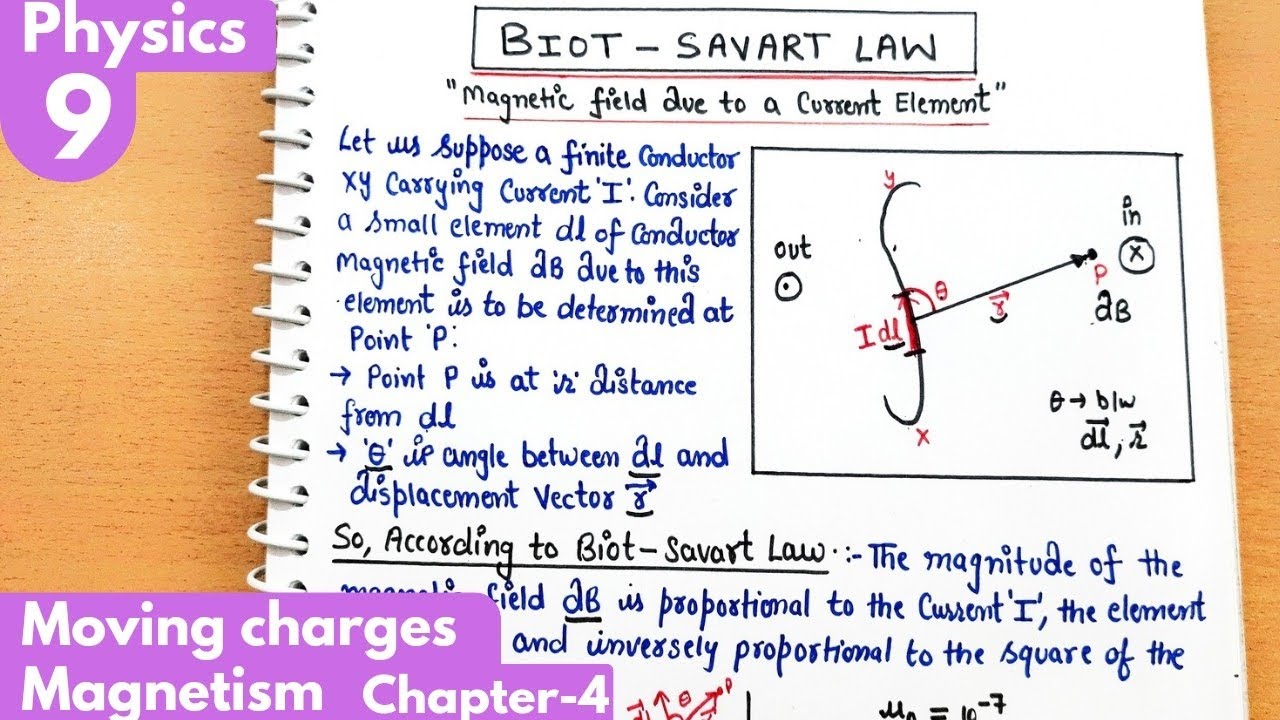 Physics
9
BIOT - SAVART LAW
"Magnetic field due to a Current Element"
Let us suppose a finite conductor
xy Carrying Current 'I'. Consider
a small element dl of conductor
magnetic field dB due to this
element is to be determined at
Point 'P'.
→ Point P is at 'r' distance
from dl
→ 'θ' is angle between dl and
displacement vector r⃗
y
out
in
θ
P
r⃗
dB
I dl
x
θ → b/w
dl⃗, r⃗
So, According to Biot-Savart Law :- The magnitude of the
field dB is proportional to the Current 'I', the element
and inversely proportional to the square of the
Moving charges
Magnetism Chapter-4
θ
P
= 10⁻⁷